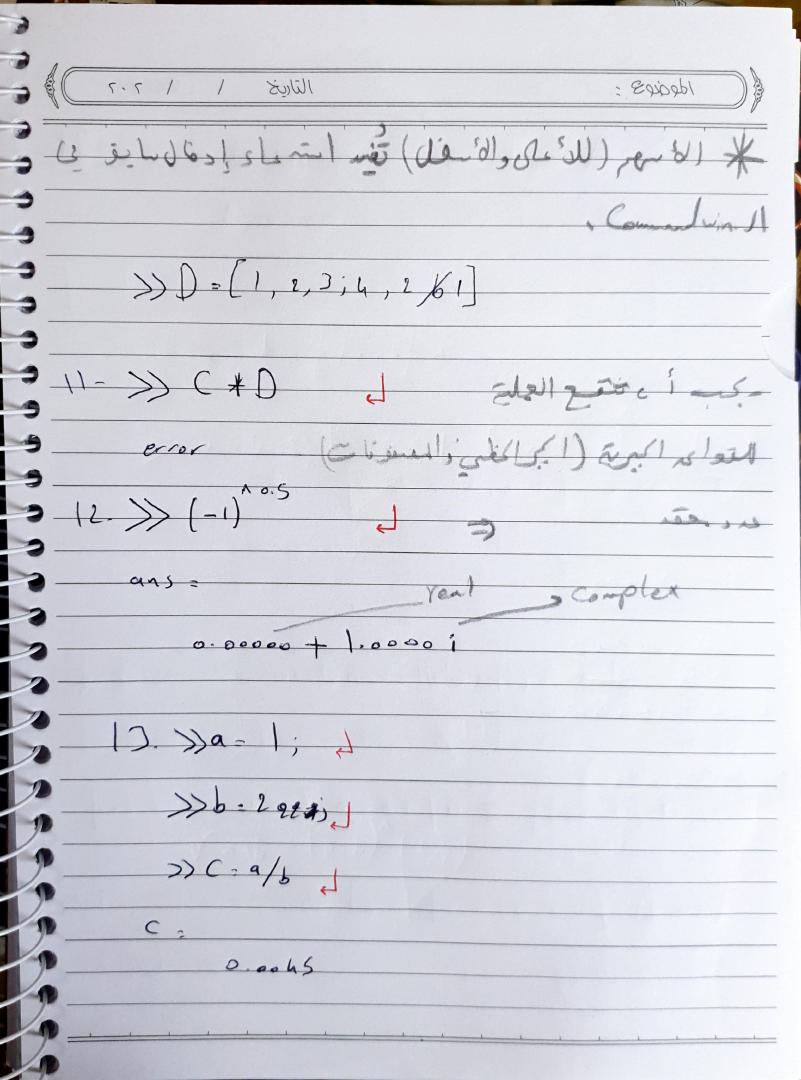 الموضوع : التاريخ / / ٢٠٢
* الأسهم (للأعلى والأسفل) تُفيد استدعاء إدخال سابق في
الـ Command win.
>> D = [1, 2, 3; 4, 2 6 1]
11- >> C * D ↵ يجب أن تخضع العملية
للقواعد الجبرية (الجبر الخطي والمصفوفات)
error
12. >> (-1)^0.5 ↵ ⇒ عدد معقد
ans =
real complex
0.00000 + 1.0000 i
13. >> a = 1; ↵
>> b = 2 ; ↵
>> C = a/b ↵
C =
0.0045